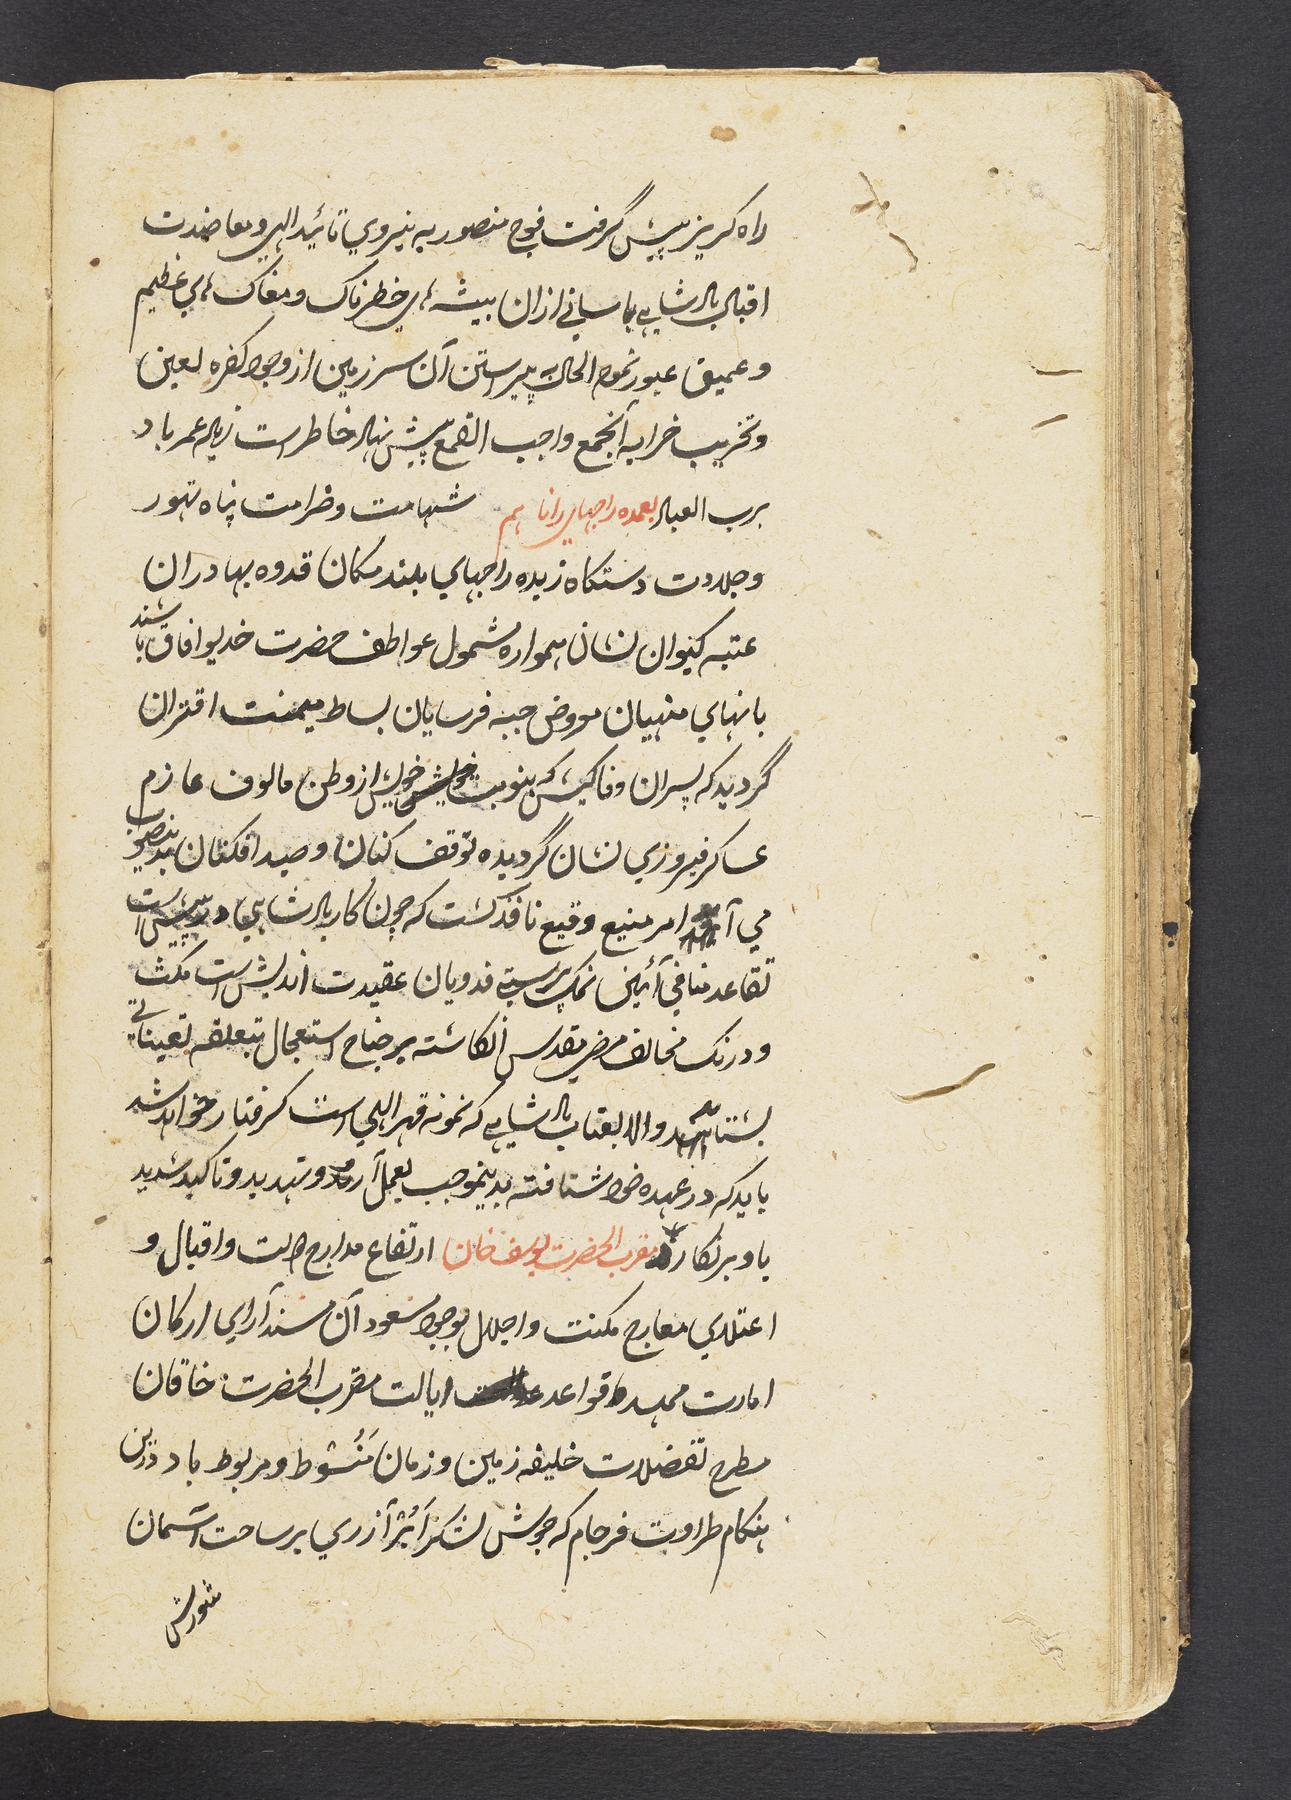 راه کریز پیش گرفت فوج منصور به نیروی تائید الهی و معاضدت
اقبال بادشاهی باسانی ازان بیشه های خطرناک ومغاک های عظیم
و عمیق عبور نموده الحال به پیراستن آن سرزمین از وجود کفره لعین
و تخریب خرابه آنجمع واجب القمع پیش نهاد خاطر است زیاده عمر باد
برب العباد بعمده راجهای رانا هم شهامت و ضرامت پناه تهور
و جلادت دستکاه زبده راجهای بلند مکان قدوه بهادران
عتبه کیوان نشان همواره مشمول عواطف حضرت خدیو افاق باشند
بانهای منهیان معروض جبه فرسایان بساط میمنت اقتران
گردید که پسران وفاکیش که بنوبت خویش از وطن مالوف عازم
عساکر فیروزی نشان گردیده توقف کنان و صید افکنان بدینصوب
می آیند امر منیع وقیع نافذ کشت که چون کار بادشاهی درپیش است
تقاعد منافی آئین نمک پرستی فدویان عقیدت اندیش است مکث
و درنک مخالف مرضی مقدس انکاشته بر جناح استعجال بتعلقه تعیناتی
بشتابند والا بعتاب بادشاهی که نمونه قهر الهی است کرفتار خواهد شد
باید که در عهده خود شتافته بدینموجب بعمل آرند و تهدید و تاکید شدید
باو برنکارند مقرب الحضرت یوسف خان ارتفاع مدارج دولت و اقبال و
اعتلای معارج مکنت و اجلال بوجود مسعود آن مسند آرای ارکان
امارت ممهد قواعد ایالت مقرب الحضرت خاقان
مطرح تفضلات خلیفه زمین و زمان مَنُشوط و مربوط باد درین
هنکام طراوت فرجام که جوش لشکر اَبْر آزری بر ساحت آسمان
شورش